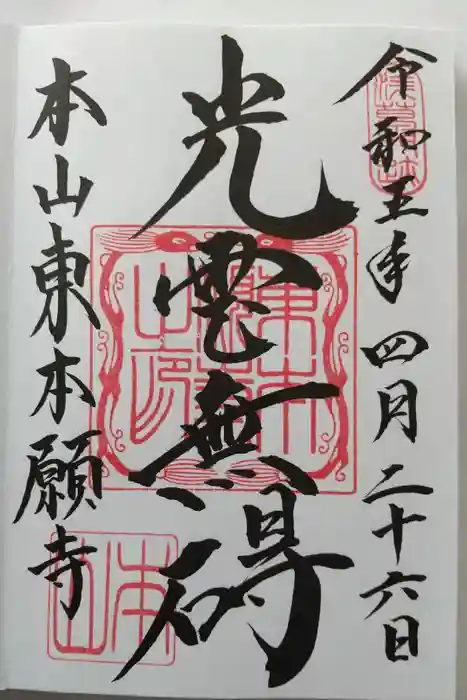 令和五年四月二十六日
光雲無碍
本山東本願寺
東本願寺之印
本山